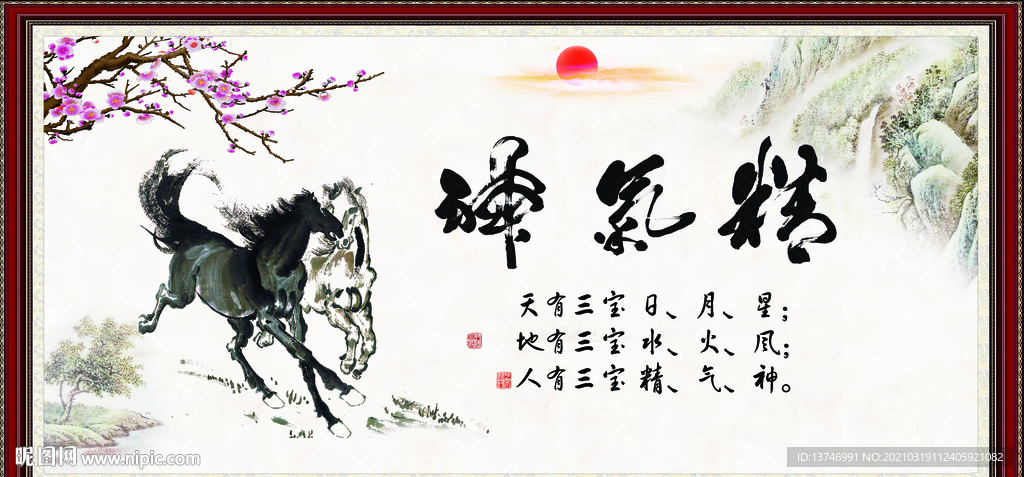 精氣神
天有三宝日、月、星；
地有三宝水、火、风；
人有三宝精、气、神。
昵图网 www.nipic.com
ID:13746991 NO:20210319112405921082